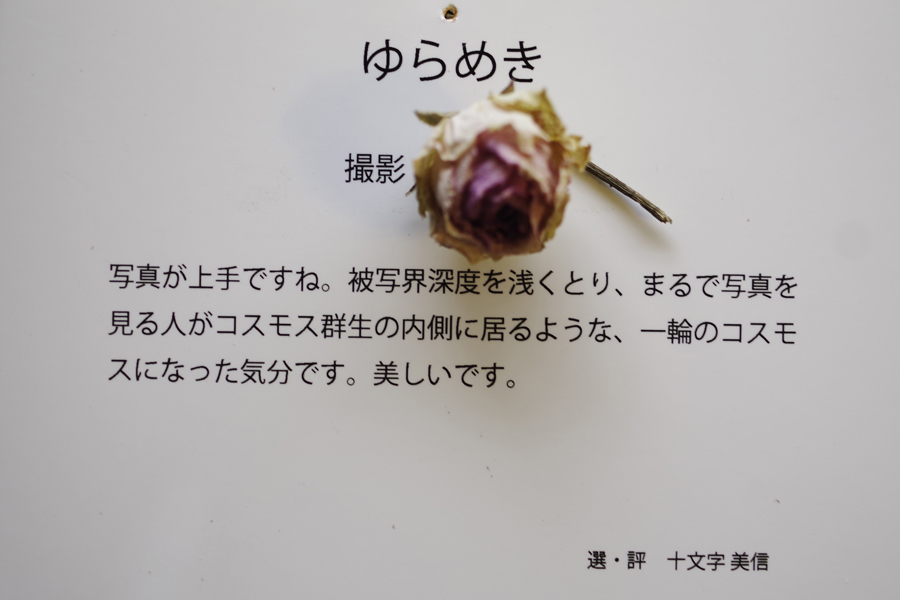 ゆらめき
撮影
写真が上手ですね。被写界深度を浅くとり、まるで写真を
見る人がコスモス群生の内側に居るような、一輪のコスモ
スになった気分です。美しいです。
選・評　十文字 美信